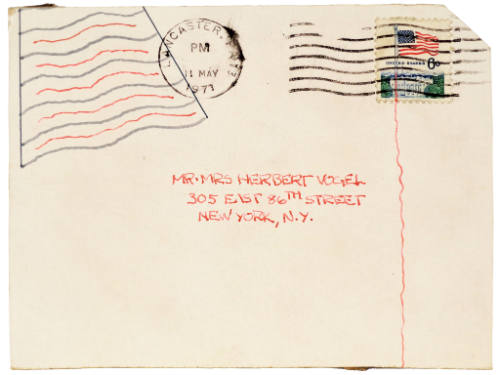 LANCASTER,
PM
11 MAY
1971
UNITED STATES
6c
MR. MRS HERBERT VOGEL
305 EAST 86TH STREET
NEW YORK, N.Y.